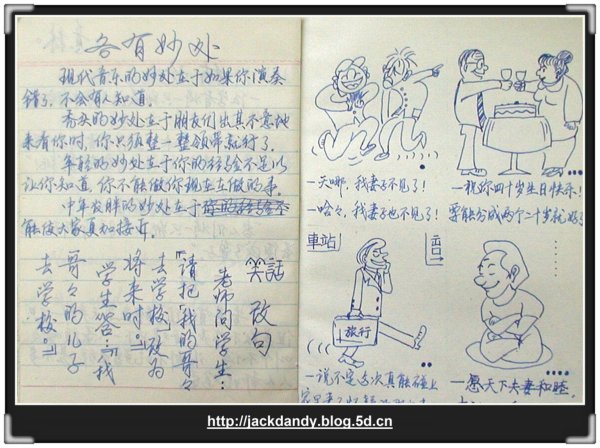 各有妙处
现代音乐的妙处在于如果你演奏
错了,不会有人知道。
的妙处在于朋友们出其不意地
来看你时,你只须整一整领带就行了。
年轻的妙处在于你的经验不足以
让你知道,你不能做你现在在做的事。
中年发胖的妙处在于
能使大家更加接近。
笑話 改句
老师问学生:
"请把'我的哥々
去学校'改为
将来时。"
学生答:"我
哥々的儿子
去学校。"
—天哪,我妻子不见了!
—哈々,我妻子也不见了!
—祝你四十岁生日快乐!
要能分成两个二十岁就好了
車站
旅行
—说不定这次真能碰上
—愿天下夫妻和睦,
http://jackdandy.blog.5d.cn